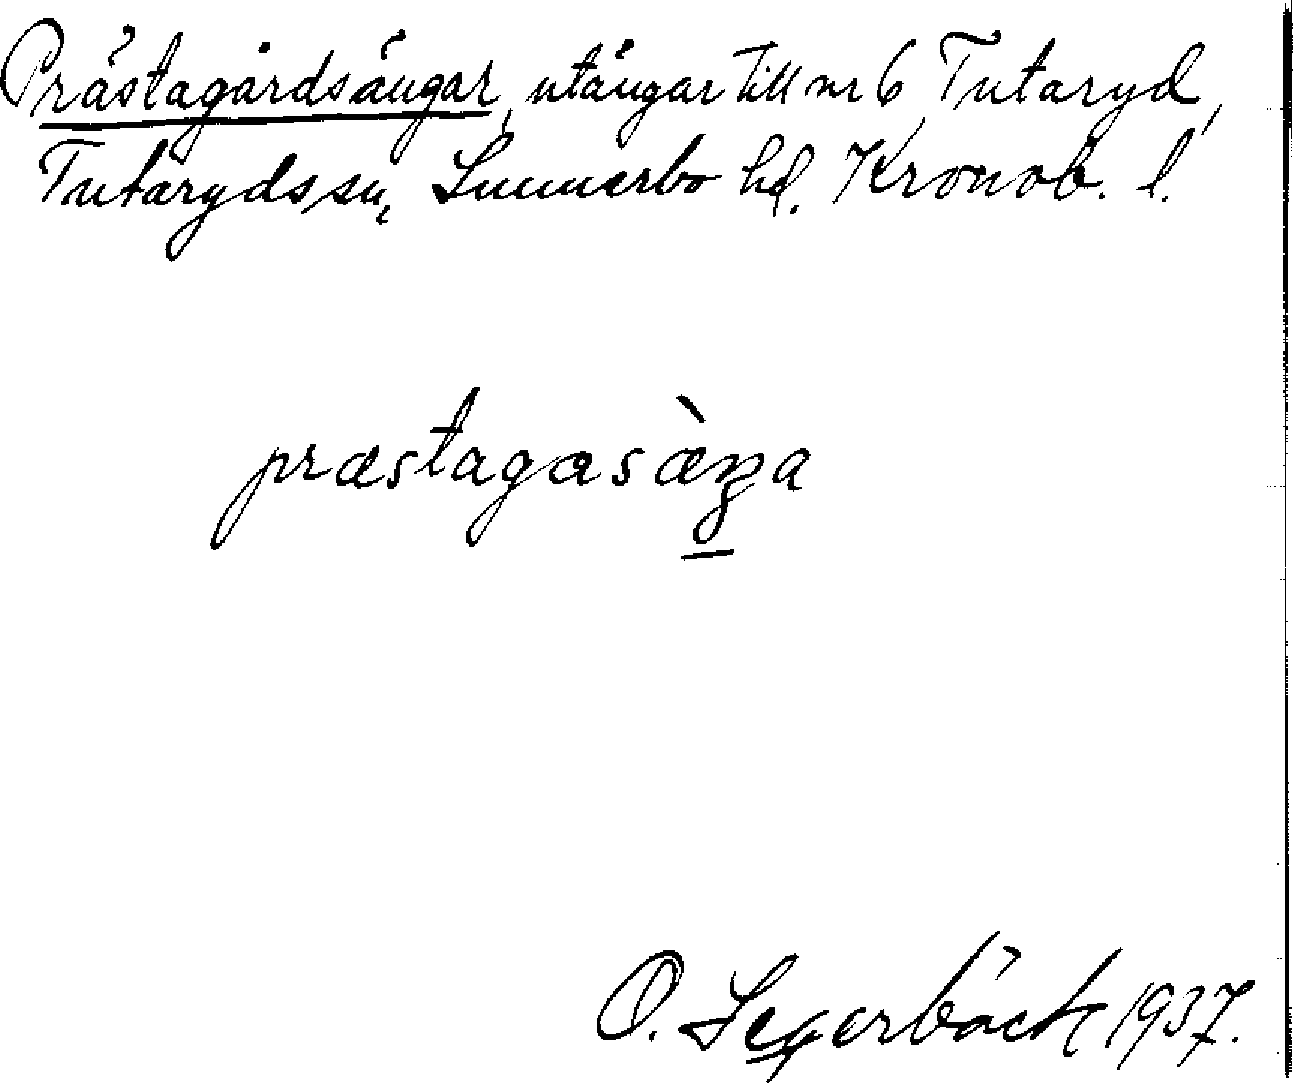 Prästagårdsängar, utängar till nr 6 Tutaryd,
Tutaryds sn, Sunnerbo hd. Kronob. l.
præstagasæ̀ŋa
O. Segerbäck 1937.